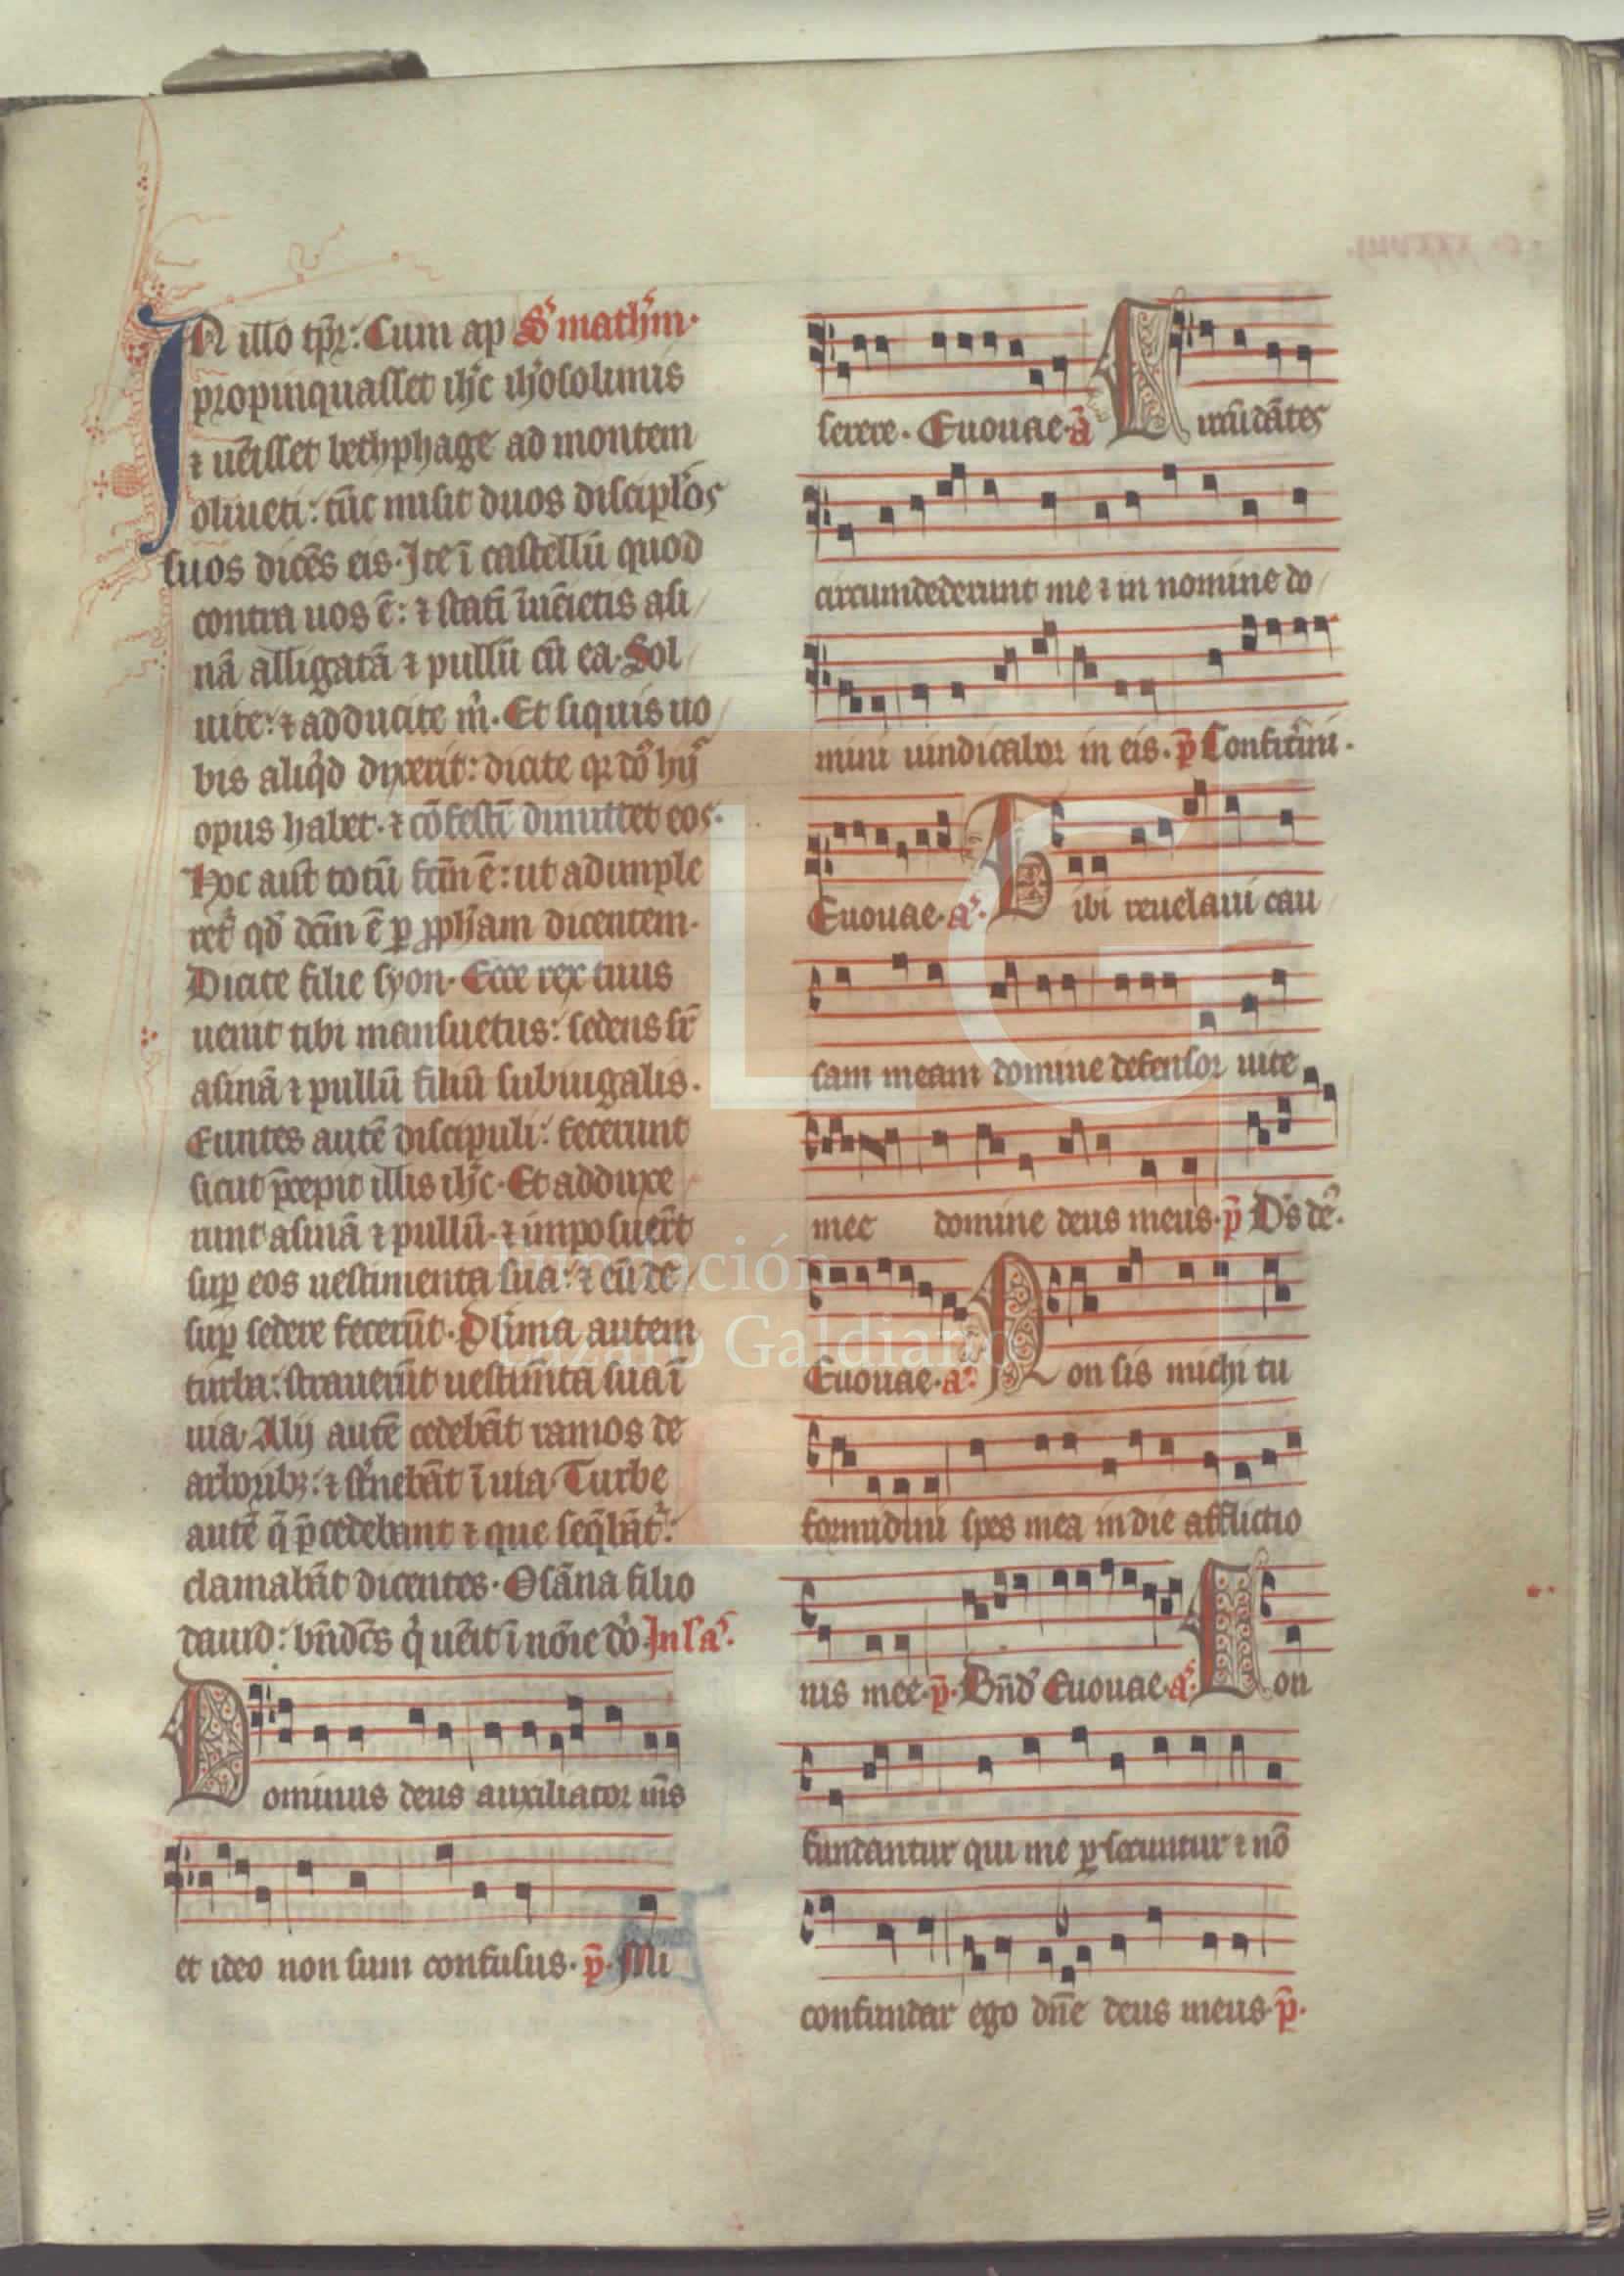 In illo tp̄r: Cum ap S' math'm·
propinquasset ih'c ih'osolimis
⁊ uēisset bethphage ad montem
oliueti: tūc misit duos discipl'os
suos dicēs eis· Ite ī castellū quod
contra uos ē: ⁊ statī īuēietis asi
nā alligatā ⁊ pullū cū ea· Sol
uite: ⁊ adducite m'· Et siquis uo
bis aliq'd dixerit: dicite qr dō hij'
opus habet· ⁊ cōfestī dimittet eos·
Hoc aūt totū fcm̄ ē: ut adimple
ret' qd' dcm̄ ē p ꝓph'am dicentem·
Dicite filie syon· Ecce rex tuus
uenit tibi mansuetus: sedens sr̄
asinā ⁊ pullū filiū subiugalis·
Euntes autē discipuli: fecerunt
sicut p̄cepit illis ih'c· Et adduxe
runt asinā ⁊ pullū· ⁊ imposuer̄t
sup eos uestimenta sua: ⁊ eū de
sup sedere fecerūt· Pl'ima autem
turba: strauerūt uestim̄ta sua ī
uia· Alij autē cedebāt ramos de
arborib;: ⁊ st'nebāt ī uia· Turbe
autē q̄ p̄cedebant ⁊ que seq̄bāt':
clamabāt dicentes· Osāna filio
dauid: bn̄dcs q' uēit ī nōie dō· In la'·
Dominus deus auxiliator m̄s
et ideo non sum confusus· p̄· Mi
serere· Euouae· ā Circūdātes
circumdederunt me ⁊ in nomine do
mini uindicabor in eis· p̄ Confitimi·
Euouae· a'· Tibi reuelaui cau
sam meam domine defensor uite
mee domine deus meus· p̄ D's de'·
Euouae· a'· Non sis michi tu
formidini spes mea in die afflictio
nis mee· p̄· Bn̄d' Euouae· a'· Con
fundantur qui me psecuntur ⁊ nō
confundar ego dn̄e deus meus· p̄·
Fundación
Lázaro Galdiano
FLG